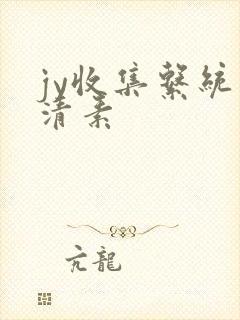 jv收集繫統
清素
亢龍